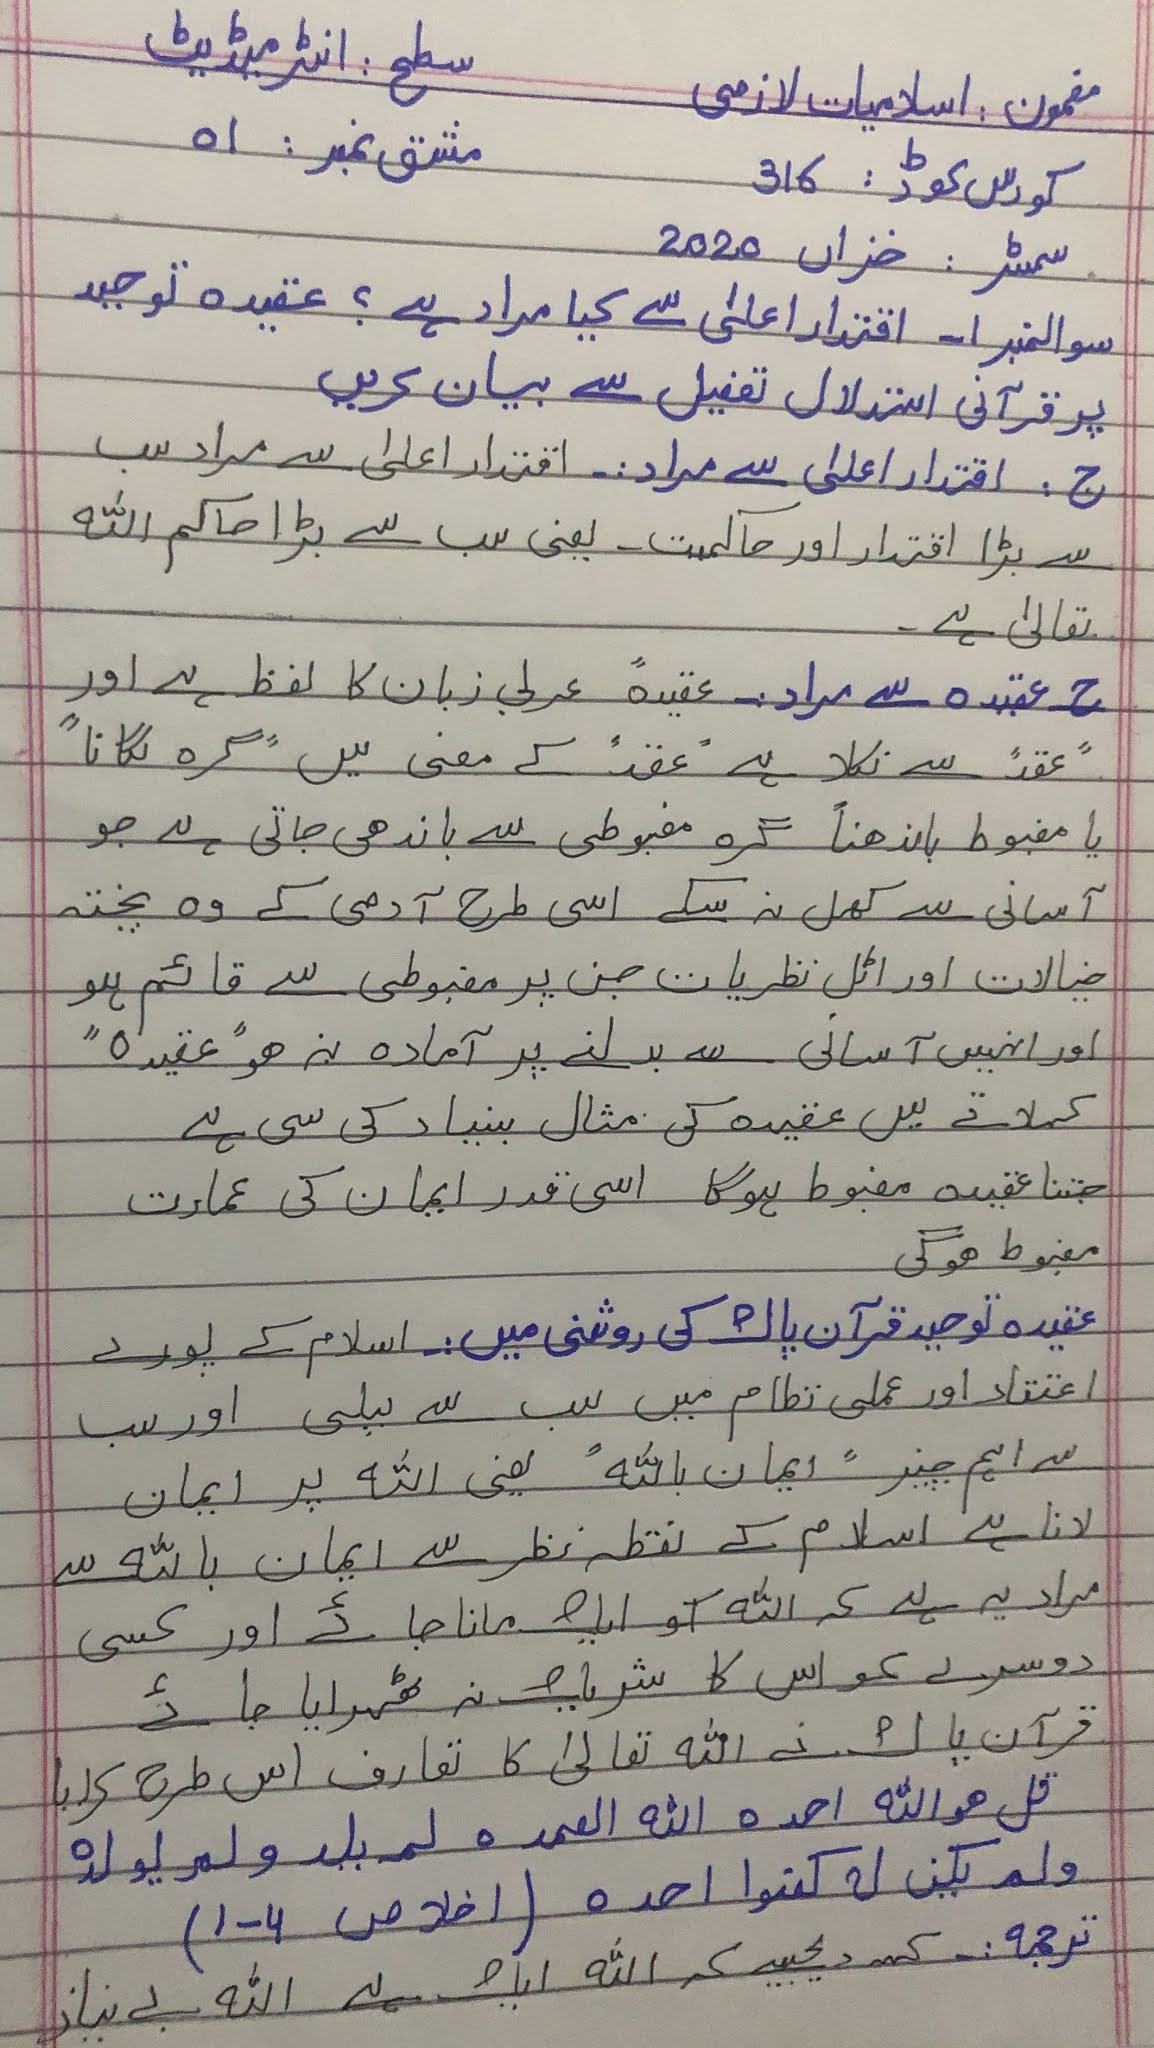 مضمون: اسلامیات لازمی سطح: انٹرمیڈیٹ
کورس کوڈ: 316 مشق نمبر: 01
سمسٹر: خزاں 2020
سوال نمبر 1۔ اقتدار اعلیٰ سے کیا مراد ہے؟ عقیدہ توحید
پر قرآنی استدلال تفیل سے بیان کریں
ج: اقتدار اعلیٰ سے مراد:۔ اقتدار اعلیٰ سے مراد سب
سے بڑا اقتدار اور حاکمیت۔ یعنی سب سے بڑا حاکم اللہ
تعالیٰ ہے۔
ج عقیدہ سے مراد:۔ عقیدہ عربی زبان کا لفظ ہے اور
"عقد" سے نکلا ہے "عقد" کے معنی ہیں "گرہ لگانا"
یا مضبوط باندھنا گرہ مضبوطی سے باندھی جاتی ہے جو
آسانی سے کھل نہ سکے اسی طرح آدمی کے وہ پختہ
خیالات اور اٹل نظریات جن پر مضبوطی سے قائم ہو
اور انہیں آسانی سے بدلنے پر آمادہ نہ ھو "عقیدہ"
کہلاتے ہیں عقیدہ کی مثال بنیاد کی سی ہے
جتنا عقیدہ مضبوط ہوگا اسی قدر ایمان کی عمارت
مضبوط ھوگی
عقیدہ توحید قرآن پاک کی روشنی میں:۔ اسلام کے پورے
اعتقاد اور عملی نظام میں سب سے پہلی اور سب
سے اہم چیز "ایمان باللہ" یعنی اللہ پر ایمان
لانا ہے اسلام کے نقطہ نظر سے ایمان باللہ سے
مراد یہ ہے کہ اللہ کو ایک مانا جائے اور کسی
دوسرے کو اس کا شریک نہ ٹھہرایا جائے
قرآن پاک نے اللہ تعالیٰ کا تعارف اس طرح کرایا
قل ھواللہ احد ہ اللہ الصمد ہ لم یلد ولم یولدہ
ولم یکن لہ کفوا احد ہ (اخلاص 4-1)
ترجمہ:۔ کہہ دیجیے کہ اللہ ایک ہے اللہ بے نیاز